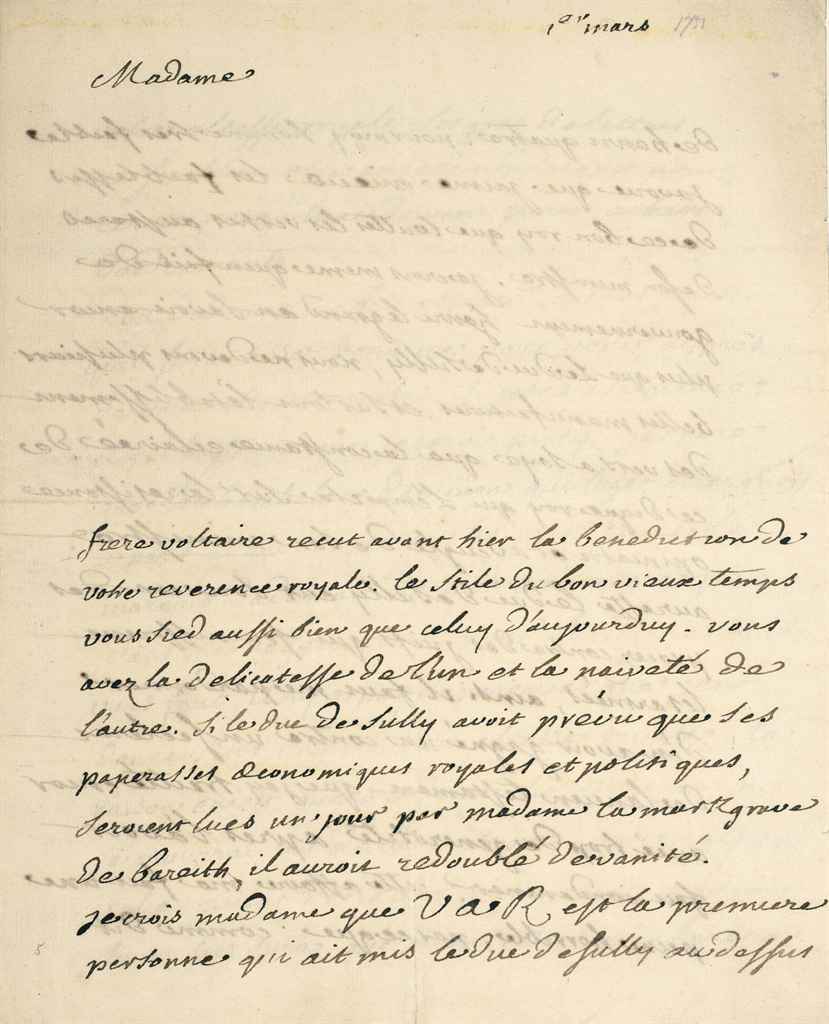 1er mars 1751
Madame
frere voltaire recut avant hier la benediction de
votre reverence royale. le stile du bon vieux temps
vous sied aussi bien que celuy d'aujourduy. vous
avez la delicatesse de l'un et la naiveté de
l'autre. si le duc de sully avoit prévu que ses
paperasses œconomiques royales et politiques,
seroient lues un jour par madame la markgrave
de bareith, il auroit redoublé de vanité.
je crois madame que V A R est la premiere
personne qui ait mis le duc de sully au dessus
5